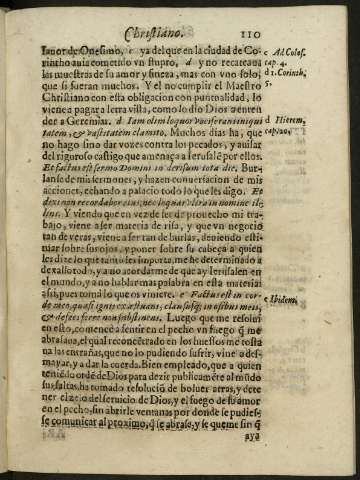 Christiano. 110
fauor de Onesimo, c ya del que en la ciudad de Co-
rintho auia cometido vn stupro, d y no recateaua
las muestras de su amor y fineza, mas con vno solo,
que si fueran muchos. Y el no cumplir el Maestro
Christiano con esta obligacion con puntualidad, lo
viene a pagar letra vista, como lo dio Dios a enten
der a Geremias. d Iam olim loquor vociferans iniqui
tatem, & vastitatem clamito. Muchos dias ha, que
no hago sino dar vozes contra los pecados, y auisar
del riguroso castigo que amenaça a Ierusalẽ por ellos.
Et factus est sermo Domini in derisum tota die. Bur-
lanse de mis sermones, y hazen conuersacion de mis
acciones, echando a palacio todo lo que les digo. Et
dexi non recordabor eius, nec loquar vltra in nomine il-
lius. Y viendo que en vez de ser de prouecho mi tra-
bajo, viene a ser materia de risa, y que vn negocio
tan de veras, viene a ser tan de burlas, deuiendo esti-
mar sobre sus ojos, y poner sobre su cabeça a quien
les dize lo que tanto les importa, me he determinado a
dexallo todo, y a no acordarme de que ay Ierusalen en
el mundo, y a no hablar mas palabra en esta materia
assi, pues toma lo que os viniere. e Factus est in cor-
de meo, quasi ignis exæstuans, claususq; in ossibus meis,
& defeci ferre non sustinens. Luego que me resolui
en esto, comencè a sentir en el pecho vn fuego q̃ me
abrasaua, el qual reconcentrado en los huessos me tosta
na las entrañas, que no lo pudiendo sufrir, vine a des-
mayar, y a dar la cuerda. Bien empleado, que a quien
teniẽdo ordẽ de Dios para dezir publicamẽte al mũdo
sus faltas, ha tomado resoluciõ de boluer atras, y dete
ner el zelo del seruicio de Dios, y el fuego de su amor
en el pecho, sin abrirle ventanas por donde se pudies-
se comunicar al proximo, q̃ se abrase, y se queme sin q̃
aya
c Ad Colos.
cap. 4.
d 1. Corinth.
5.
d Hierem.
cap. 20.
e Ibidem.